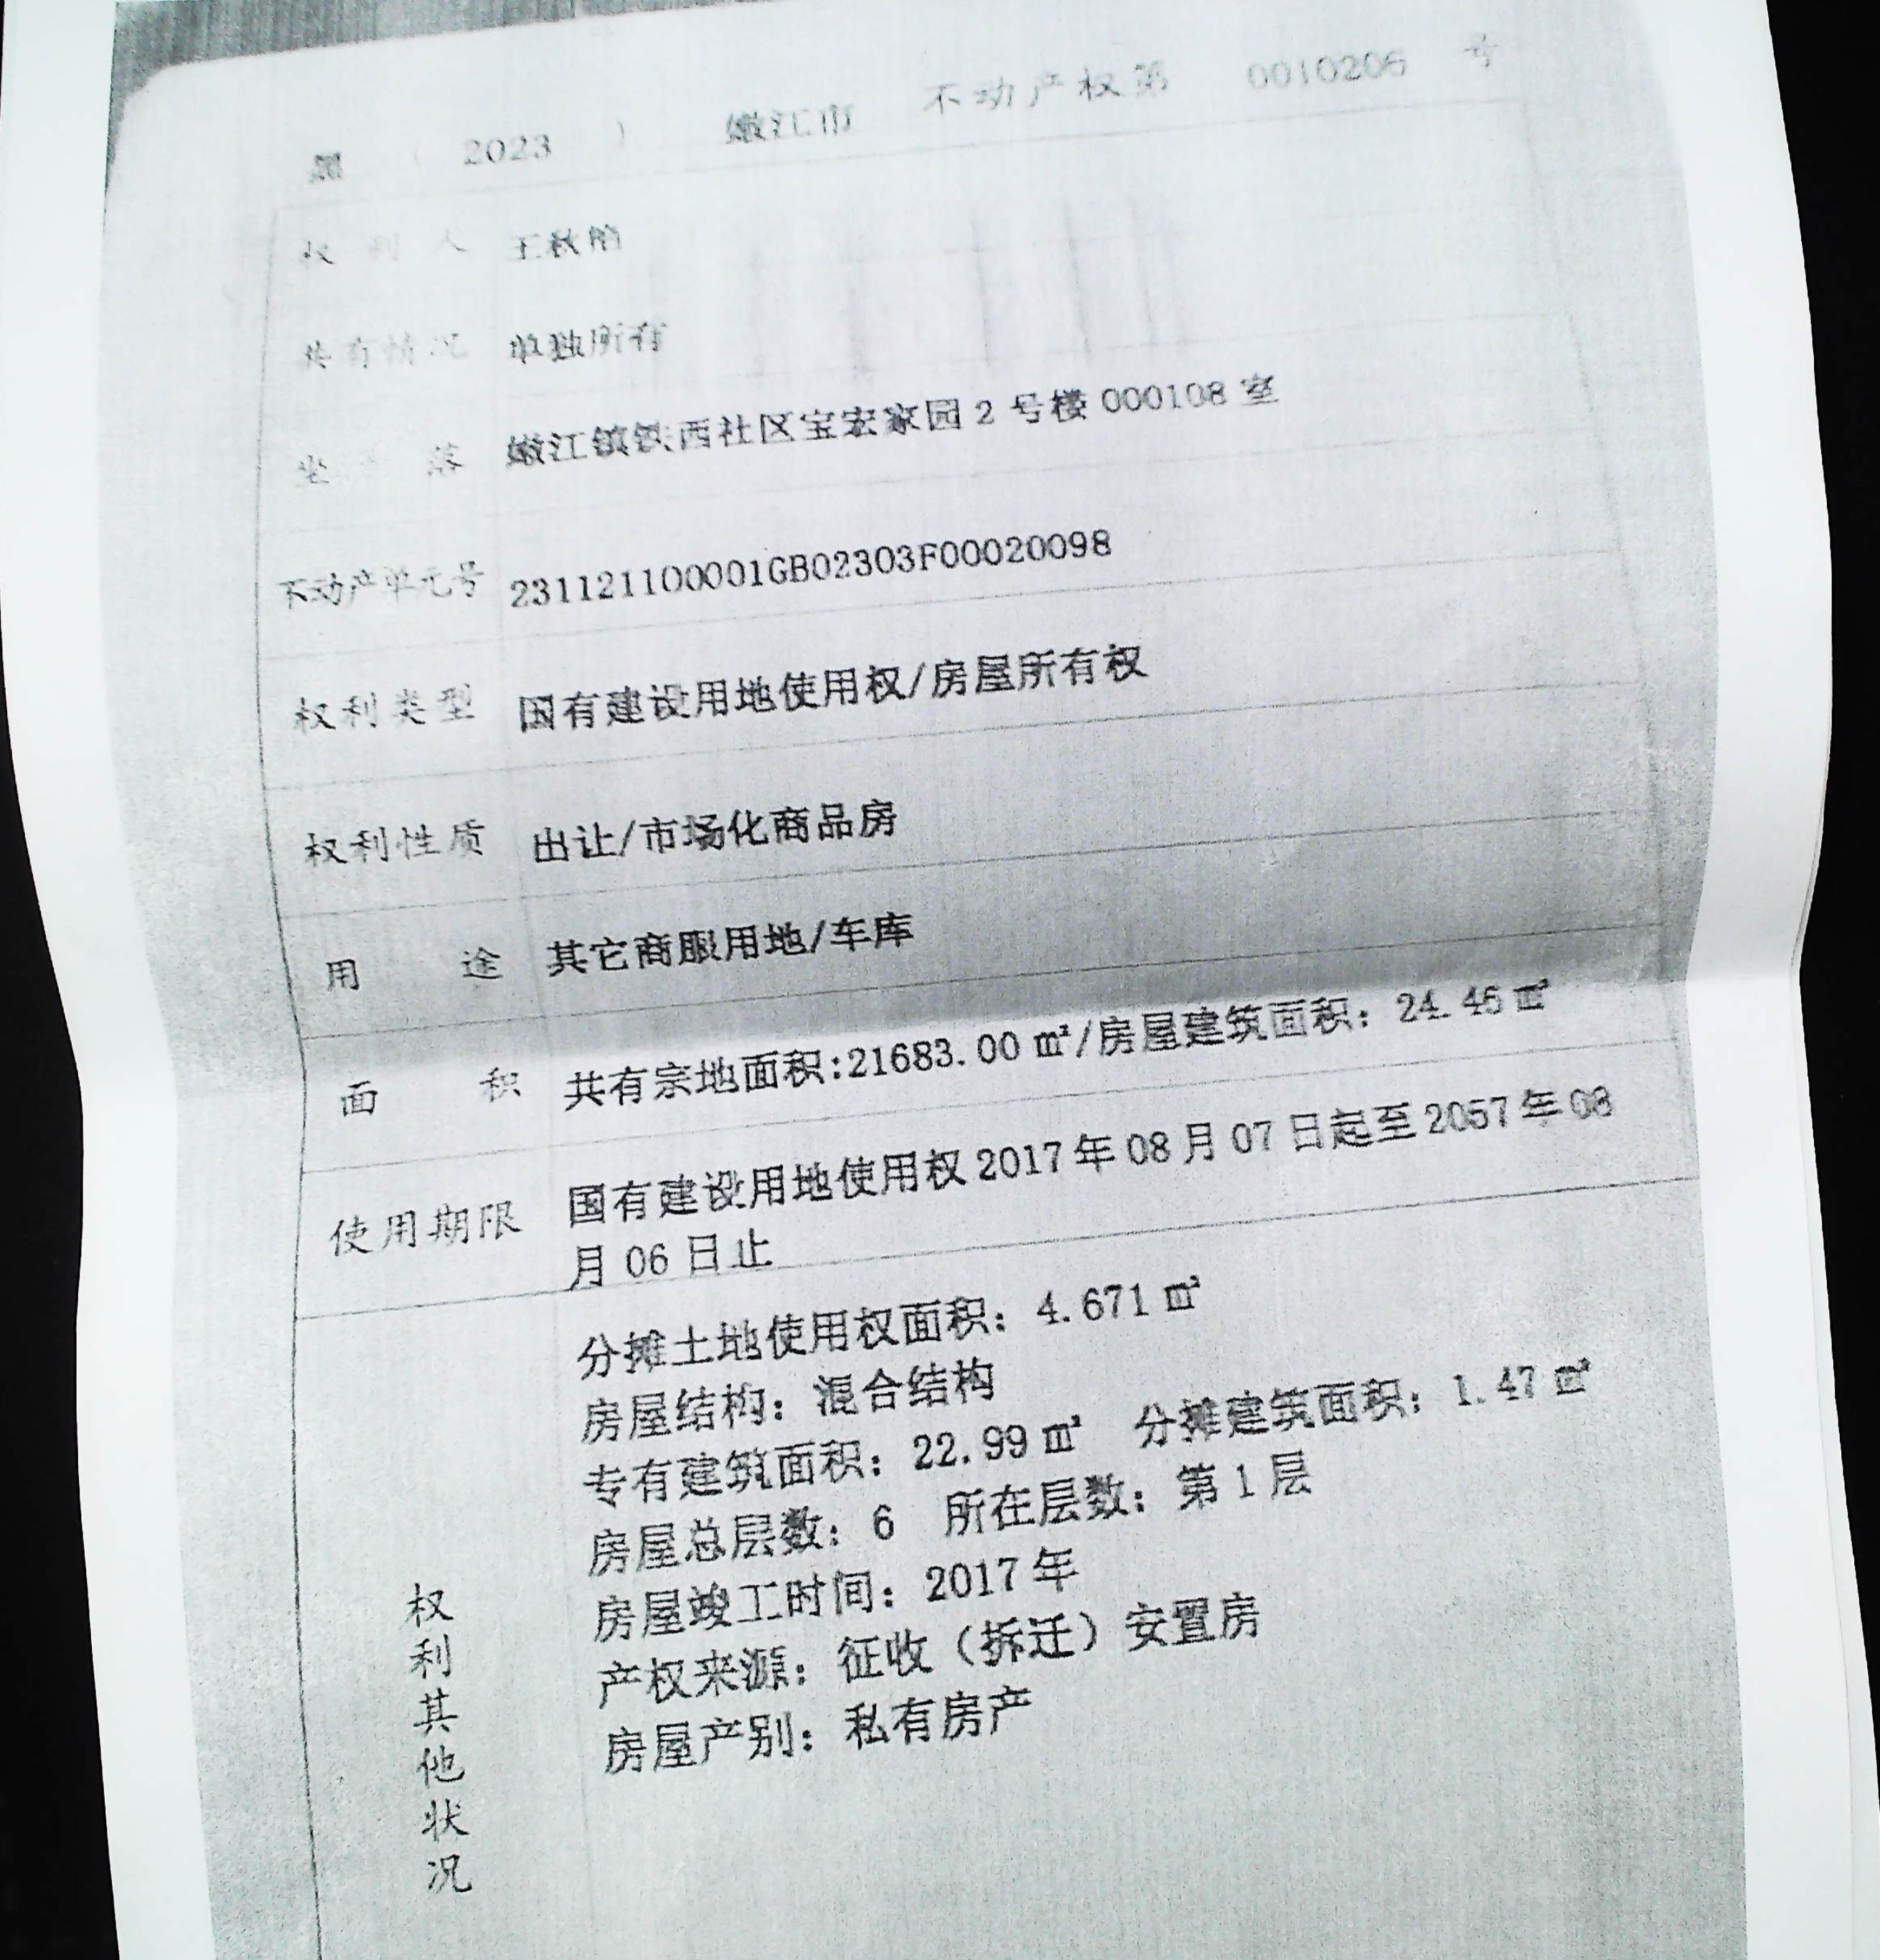 黑 ( 2023 ) 嫩江市 不动产权第 0010206 号
权利人 王秋
共有情况 单独所有
坐落 嫩江镇铁西社区宝宏家园2号楼000108室
不动产单元号 231121100001GB02303F00020098
权利类型 国有建设用地使用权/房屋所有权
权利性质 出让/市场化商品房
用途 其它商服用地/车库
面积 共有宗地面积:21683.00㎡/房屋建筑面积：24.46㎡
使用期限 国有建设用地使用权2017年08月07日起至2057年08
月06日止
权利其他状况
分摊土地使用权面积：4.671㎡
房屋结构：混合结构
专有建筑面积：22.99㎡ 分摊建筑面积：1.47㎡
房屋总层数：6 所在层数：第1层
房屋竣工时间：2017年
产权来源：征收（拆迁）安置房
房屋产别：私有房产